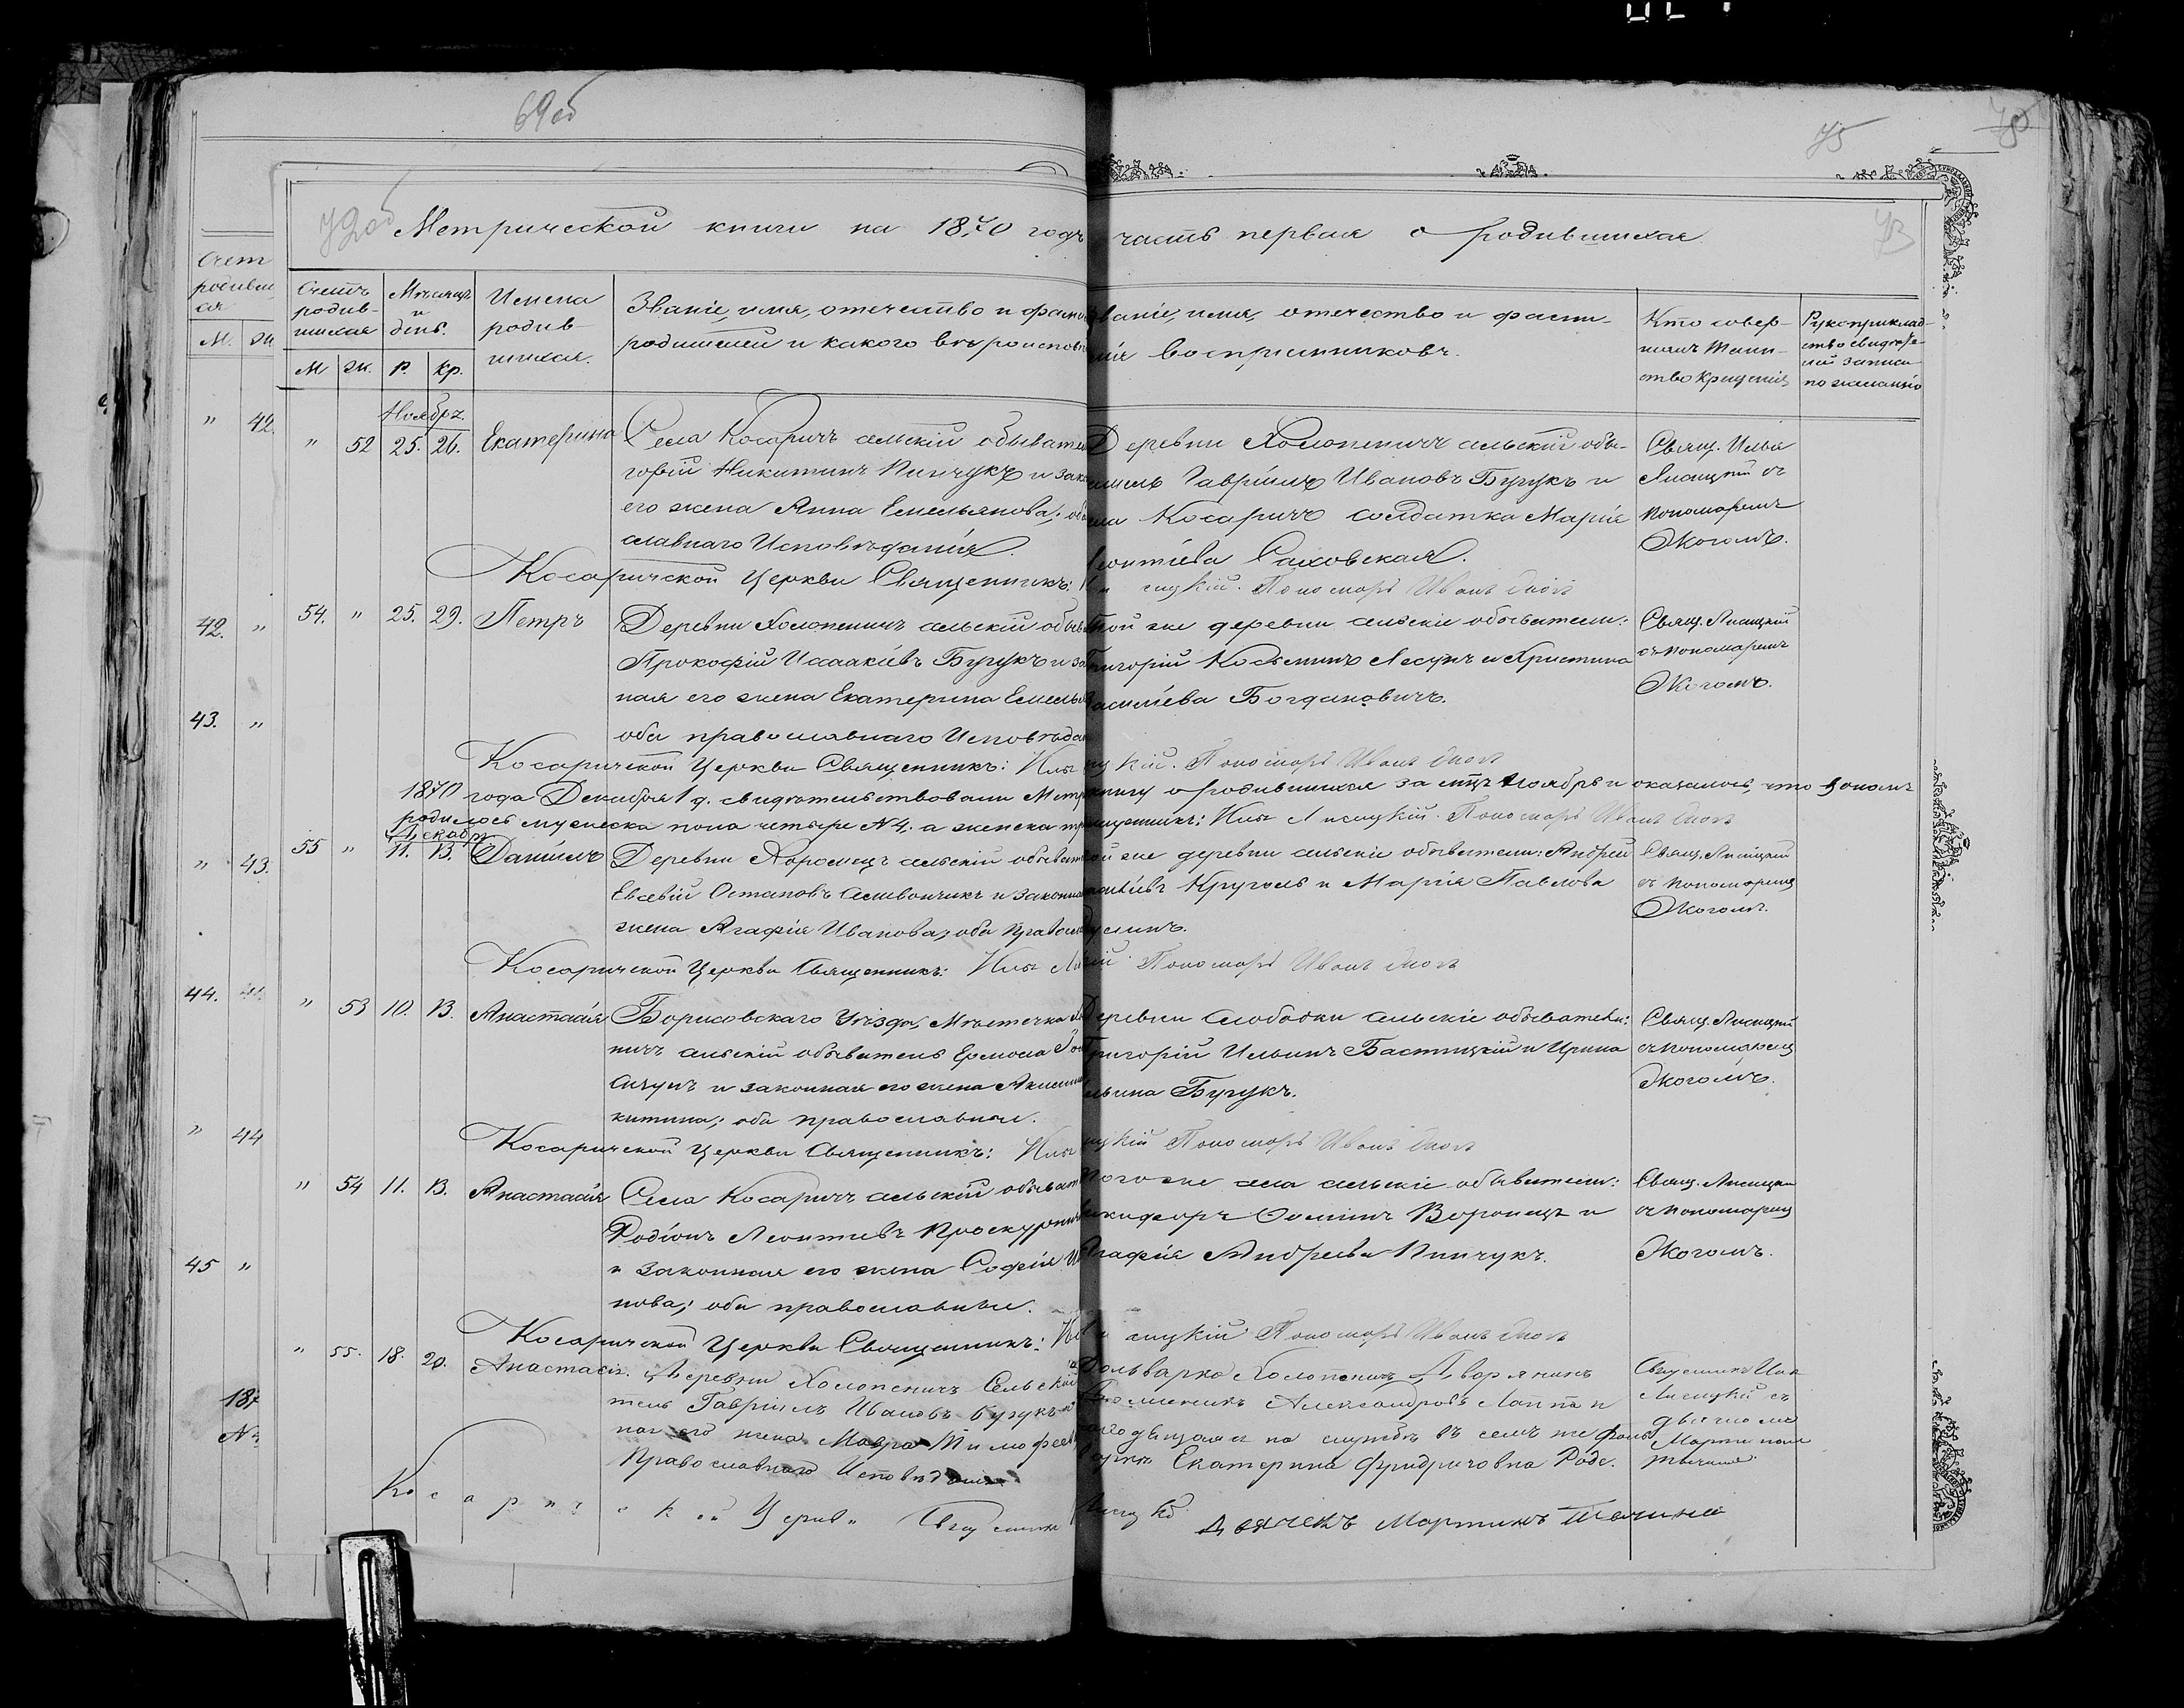 69 об
75
70
72об
73
Метрической книги на 1870 годъ часть первая о родившихся.
Счет родивш ся
М. Ж
Счетъ родив-шихся
М Ж.
Мѣсяцъ и день.
Р. Кр.
Имена родив-шихся.
Званіе, имя, отечество и фами
родителей и какого вѣроисповѣ
Званіе, имя, отечество и фами-
лія воспріимниковъ.
Кто совер-
шалъ таин-
ство крещенія
Рукоприклад-
ство свидѣте-
лей записи
по желанію
" 42.
42. "
43. "
" 43.
44.
" 44
45 "
187
Ноября.
" 52 25. 26. Екатерина
Села Косаричъ сельскій обывател
горій Никитинъ Пинчукъ и зак
его жена Анна Емельянова; оба
славнаго Исповѣданія.
Деревни Холопеничъ сельскій обы-
ватель Гавріилъ Ивановъ Бучукъ и
села Косаричъ солдатка Марія
Леонтіева Саховская.
Свящ. Илья
Лисицкій съ
пономаремъ
Экогомъ.
Косаричской Церкви Священникъ: Пономарь Иванъ
54. " 25. 29. Петръ
Деревни Холопеничъ сельскій обыв
Прокофій Исаакіевъ Бучукъ и за
ная его жена Екатерина Емелья
оба православнаго Исповѣдан
той же деревни сельскіе обыватели:
Григорій Косьминъ Лесунъ и Христина
Василіева Богдановичъ.
Свящ. Лисицкій
съ пономаремъ
Экогомъ.
Косаричской Церкви Священникъ: Илья Пономарь Иванъ
1870 года Декабря 1 д. свидѣтельствовали Метр книгу о родившихся за мцъ Ноябрь и оказалось, что въ ономъ
родилось мужеска пола четыре №4. а женска Священникъ: Илья Лисицкій. Пономарь Иванъ
Декабр
55 " 11. 13. Даніилъ
Деревни Хоромецъ сельскій обывате
Евсевій Остаповъ Селивончикъ и законна
жена Агафія Иванова; оба правосла
той же деревни сельскіе обыватели: Андрей
Круголь и Марія Павлова
Свящ. Лисицкій
съ пономаремъ
Экогомъ.
Косаричской Церкви Священникъ: Илья Пономарь Иванъ
" 53 10. 13. Анастасія
Борисовскаго Уѣзда, Мѣстечка
ничъ сельскій обыватель Ермола
и законная его жена
китина; оба православные.
Деревни Слободки сельскіе обыватели:
Григорій Ильинъ Бастицкій и Ирина
Ильина Бучукъ.
Свящ. Лисицкій
съ пономаремъ
Экогомъ.
Косаричской Церкви Священникъ: Илья Пономарь Иванъ
" 54 11. 13. Анастасія
Села Косаричъ сельскій обыват
Родіонъ Леонтіевъ Проскурни
и законная его жена Софія Ив
нова; оба православные.
Того же села сельскіе обыватели:
Никифоръ Ооминъ Воронецъ и
Агафія Андреева Пинчукъ.
Свящ. Лисицкій
съ пономаремъ
Экогомъ.
Косаричской Церкви Священникъ: Пономарь Иванъ
" 55. 18. 20. Анастасія.
Деревни Холопеничъ Сельскій
тель Гавріилъ Ивановъ Бучукъ и
ная его жена Мавра Тимофее
Православнаго Исповѣданія
Фольварка Холопеничъ Дворянинъ
Александровъ Лаппа и
на службѣ въ семъ же Фоль
варкѣ Екатерина Фридриховна Роде.
Священникъ Илія
Лисицкій съ
Косаричской Церкви Священникъ
Дьячекъ Мартинъ